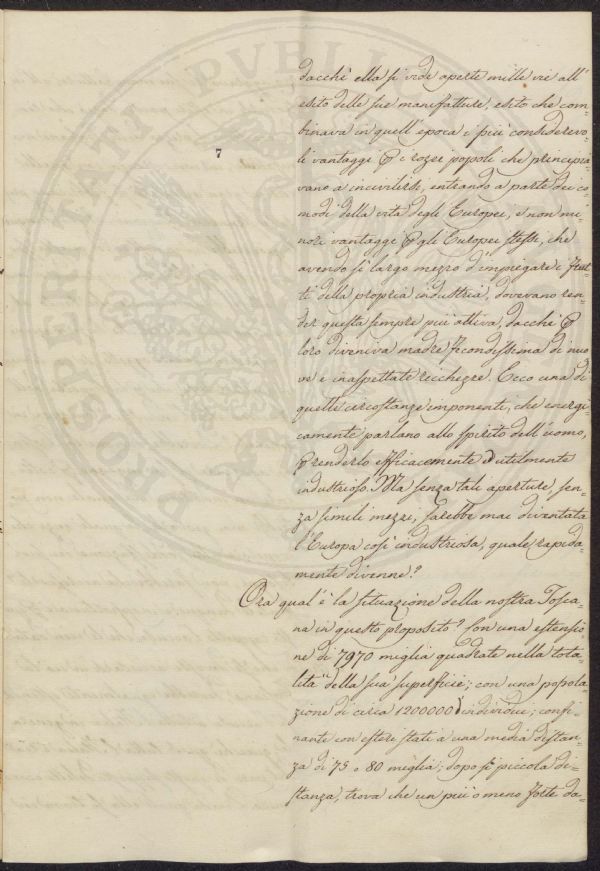 PROSPERITATI PVBLICAE
7
dacchè ella si vide aperte mille vie all'
esito delle sue manifatture, esito che com-
binava in quell'epoca i più considerevo-
li vantaggi ꝑ i rozzi popoli che principia-
vano a incivilirsi, entrando a parte dei co-
modi della vita degli Europei, e non mi-
nori vantaggi ꝑ gli Europei stessi, che
avendo sì largo mezzo d'impiegare i frut-
ti della propria industria, dovevano ren-
der questa sempre più attiva, dacchè ꝑ
loro diveniva madre fecondissima di nuo-
ve e inaspettate ricchezze. Ecco una di
quelle circostanze imponenti, che energi-
camente parlano allo spirito dell'uomo,
ꝑ renderlo efficacemente ed utilmente
industrioso. Ma senza tali aperture, sen-
za simili mezzi, sarebbe mai diventata
l'Europa così industriosa, quale rapida-
mente divenne?
Ora qual'è la situazione della nostra Tosca-
na in questo proposito? Con una estensio-
ne di 7970 miglia quadrate nella tota-
lità della sua superficie; con una popola-
zione di circa 1200000 individui; confi-
nante con esteri stati a una media distan-
za di 75 o 80 miglia; dopo sì piccola di-
stanza, trova che un più o meno forte da-